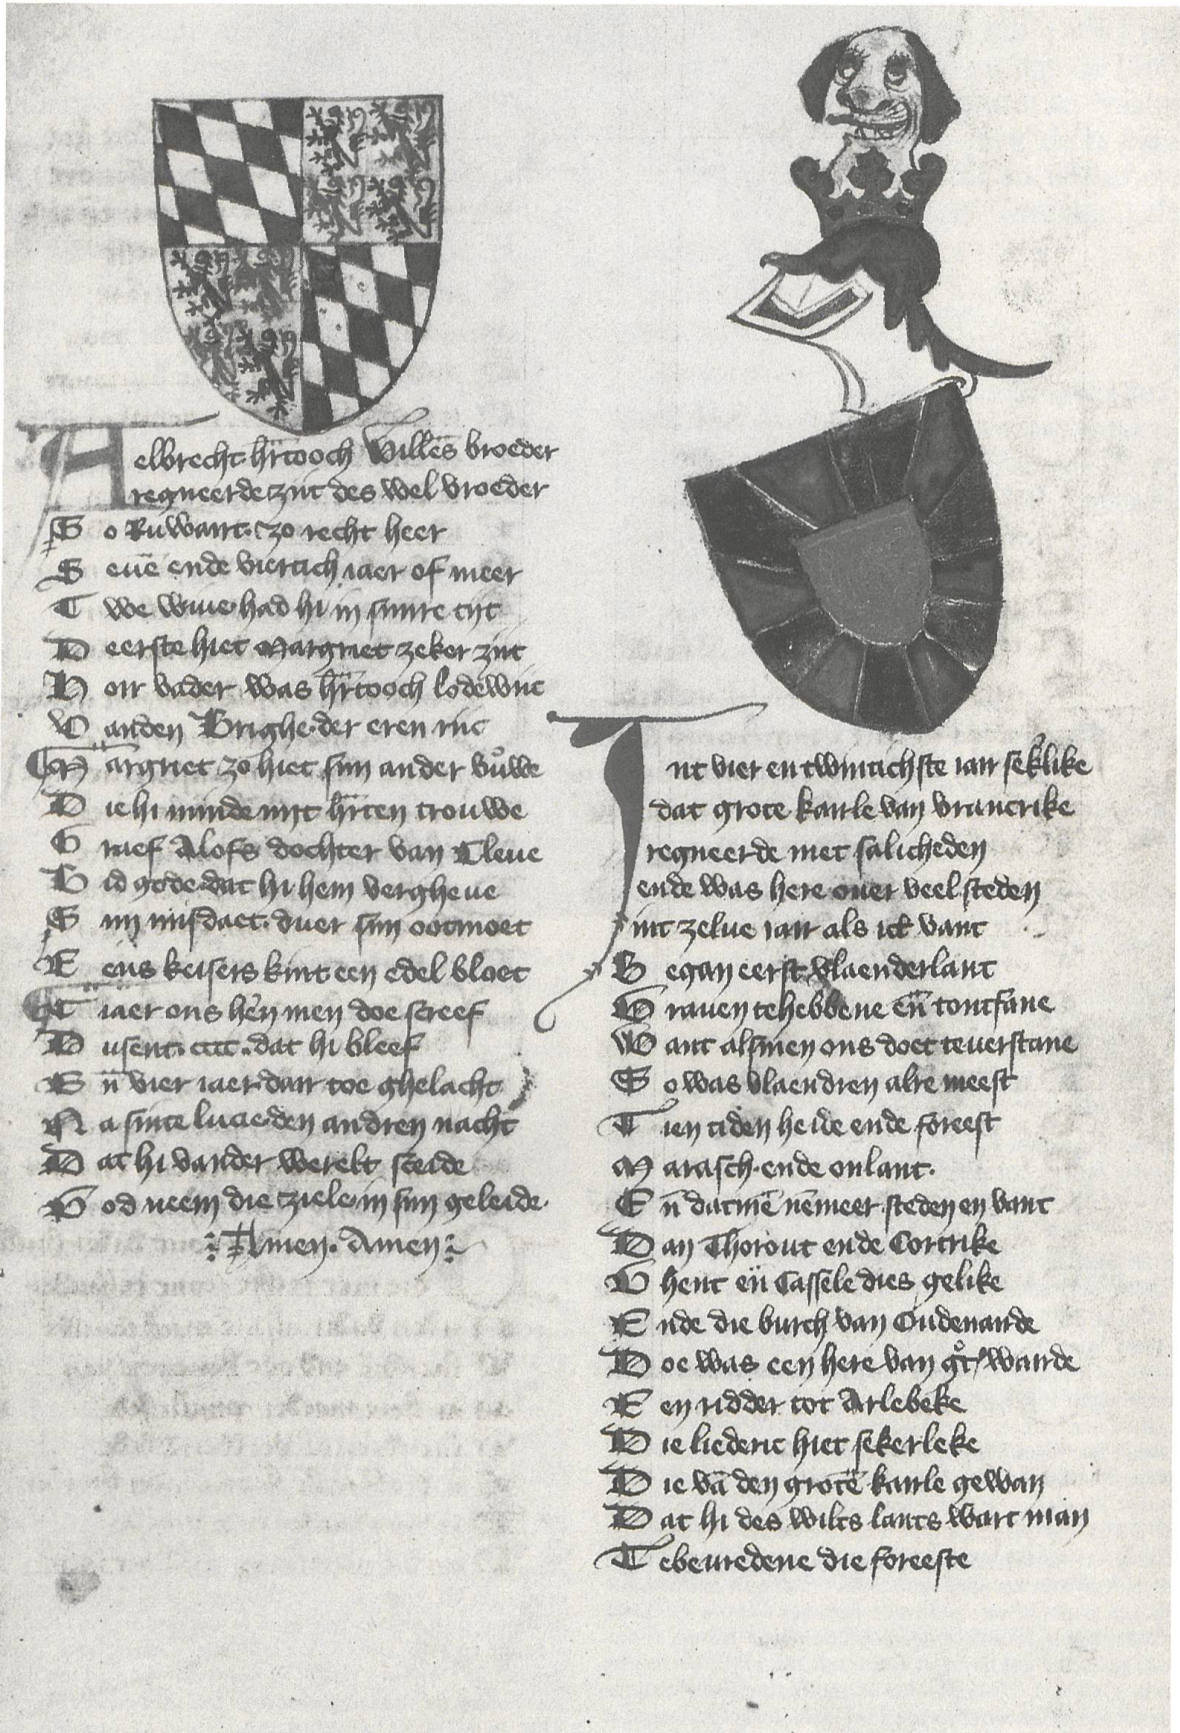 Aelbrecht hr̄tooch Willēs broeder
regneerde zint des wel vroeder
So Ruwart. ꝫo recht heer
Seuē ende viertich iaer of meer
Twe wiue had hi in sinre tijt
Deerste hiet Margriet zeker zijt
Hoir vader was hr̄tooch lodewijc
Vanden Brighe der eren rijc
Margriet zo hiet sijn ander vrouwe
Die hi minde mit hr̄ten trouwe
Graef Alofs dochter van Cleue
Bid gode dat hi hem vergheue
Sijn misdaet. duer sijn ootmoet
Eens keisers kint een edel bloet
Tiaer ons hēn men doe screef
Dusent. cccc. dat hi bleef
Eñ vier iaer dair toe ghelacht
Na sinte lucie den andren nacht
Dat hi vander werelt sceide
God neem die ziele in sijn geleide.
Amen. Amen
Int vier en twintichste iair sekerlike
dat grote kaerle van vrancrike
regneerde met salicheden
ende was here ouer veel steden
int zelue iair als ict vant
Began eerst vlaenderlant
Grauen te hebbene eñ tontfane
Want alsmen ons doet te verstane
So was vlaendren alre meest
Tien tiden heide ende foreest
Marasch. ende onlant.
Eñ datmē nēmeer steden en vant
Dan Thorout ende Cortrike
Ghent eñ Cassele dies gelike
Ende die burch van Oudenarde
Doe was een here van groter warde
Een ridder tot Arlebeke
Die liederic hiet sekerleke
Die vā den grotē kaerle gewan
Dat hi des wilts lants wart man
Te bevredene die foreeste